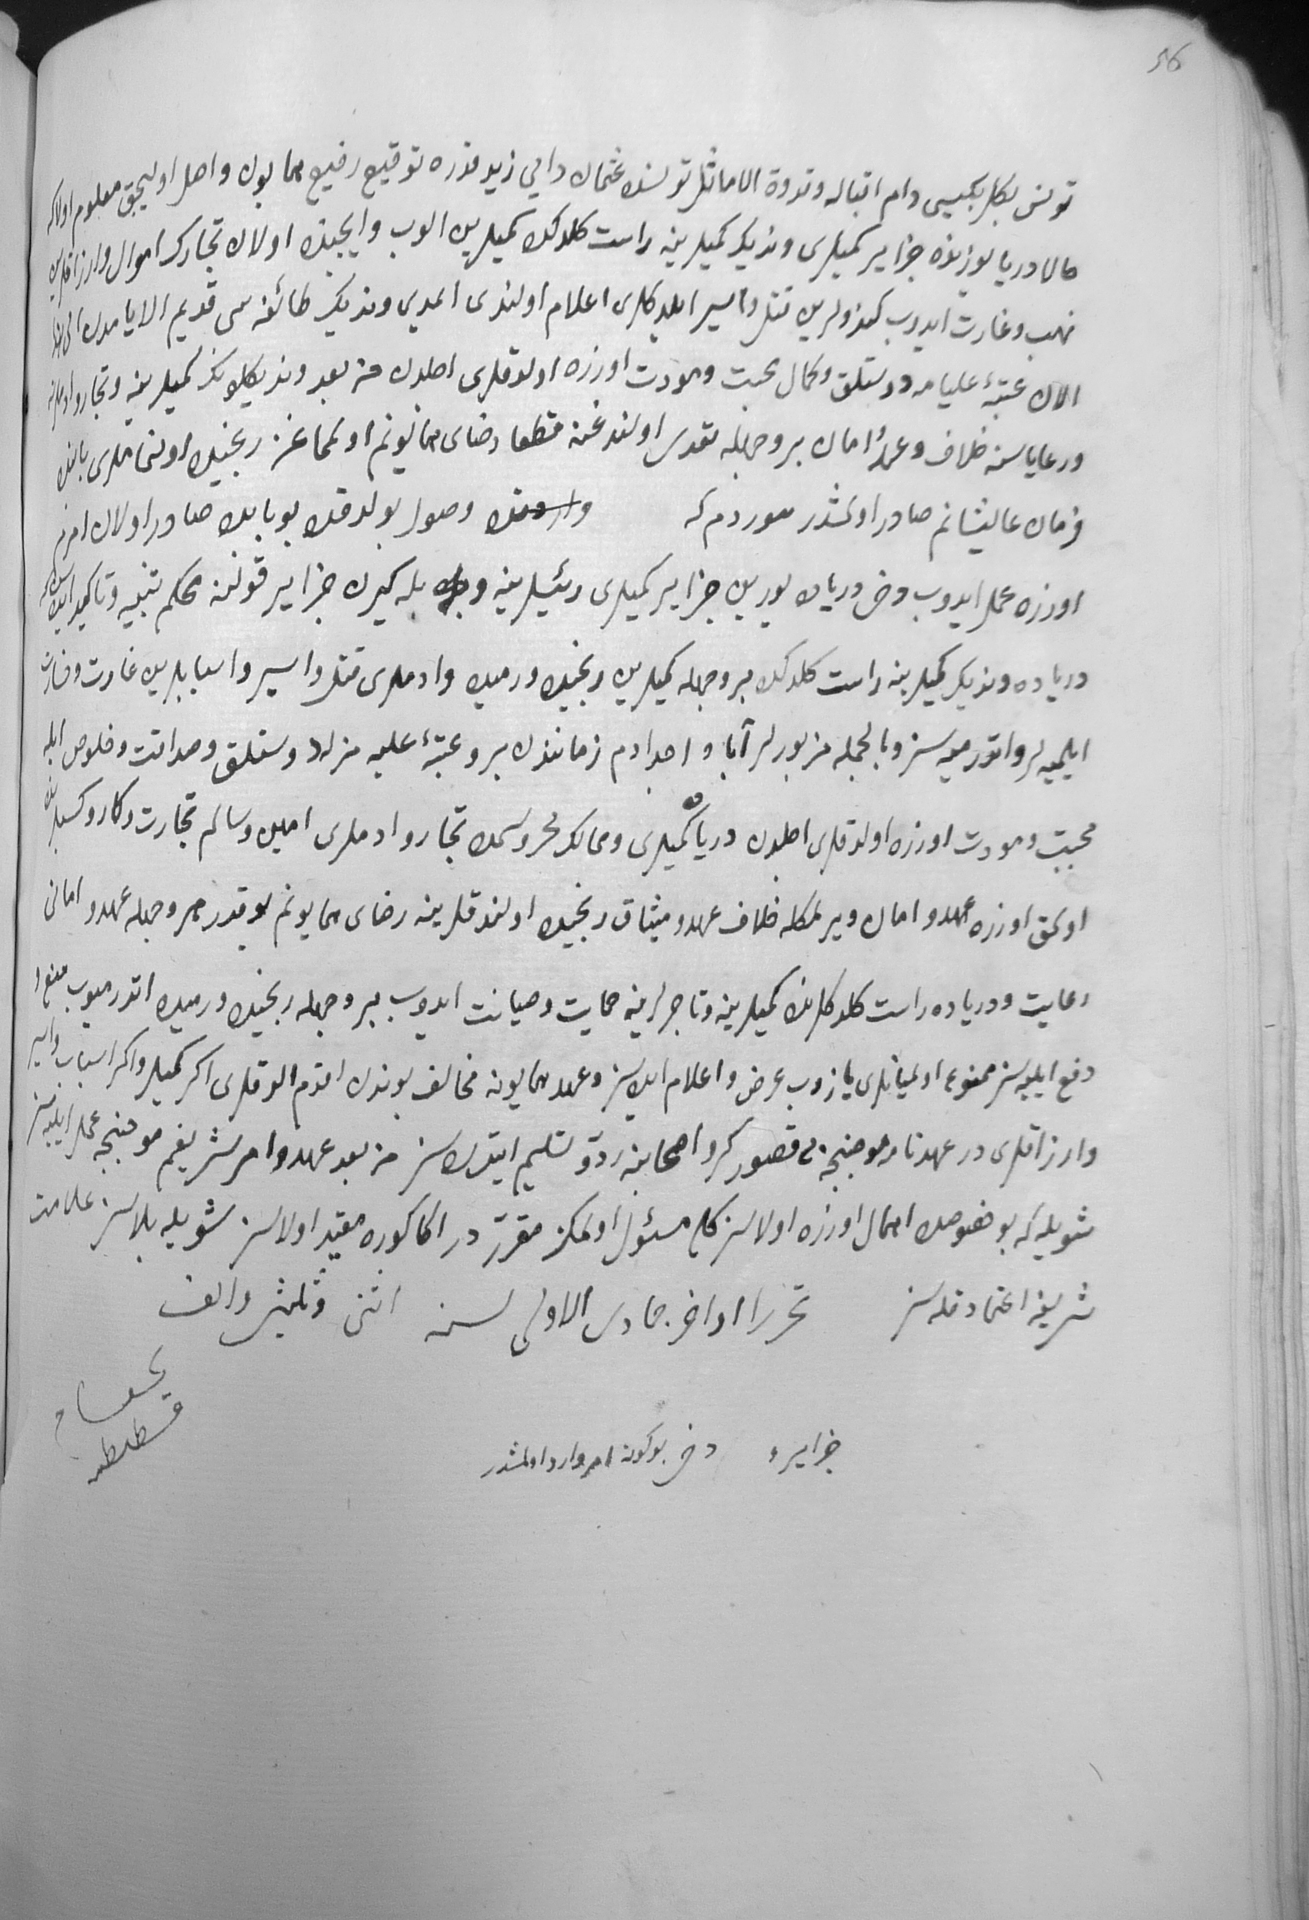 56
تونس بكلربكيسى دام اقباله وقدوة الاماثل تونسده عثمان دايى زيد قدره توقيع رفيع همايون واصل اوليجق معلوم اولاكه
حالا دريا يوزنده جزاير كميلرى ونديك كميلرينه راست كلدكده كميلرين الوب وايچنده اولان تجارك اموال وارزاقلرين
نهب وغارت ايدوب كندولرين قتل واسير ايلدكلرى اعلام اولندى ايمدى ونديك طائفه سى قديم الايامدن الى
الان عتبۀ عليامه دوستلق وكمال محبت ومودت اوزره اولدقلرى اجلدن من بعد ونديكلولرك كميلرينه وتجار وادملرينه
ورعاياسنه خلاف وعهد امان بر وجهله تعدى اولندغنه قطعا رضاى همايونم اولمامغن رنجيده اولنمامالرى بابنده
فرمان عاليشانم صادر اولمشدر بيوردم كه وصول بولدقده بو بابده صادر اولان امرم
اوزره عمل ايدوب دخى درياده يورين جزاير كميلرى رئيسلرينه و بله كيدن جزاير قولنه محكم تنبيه وتاكيد ايده سزكه
درياده ونديك كميلرينه راست كلدكده بر وجهله كميلرين رنجيده ورميده وادملرى قتل واسير واسبابلرين غارت وخسارت
ايلميه لر واتدرميه سز وبالجمله مزبورلر آبا و اجدادم زمانندن برو عتبۀ عليه مزله دوستلق وصداقت وخلوص ايله
محبت ومودت اوزره اولدقلرى اجلدن درياده كميلرى وممالك محروسه ده تجار وادملرى امين وسالم تجارت وكار وكسبلرنده
اولمق اوزره عهد و امان ويرلمكله خلاف عهد وميثاق رنجيده اولندقلرينه رضاى همايونم يوقدر هر وجهله عهد و امانى
رعايت ودرياده راست كلدكلرنده كميلرينه وتاجرلرينه حمايت وصيانت ايدوب بر وجهله رنجيده ورميده اتدرميوب منع و
دفع ايليه سز ممنوع اولميانلرى يازوب عرض واعلام ايده سز وعهد همايونه مخالف بوندن اقدم الدقلرى اكر كميلر واكر اسباب واسير
وارزاقلرى در عهدنامه موجبنجه بى قصور كرو اصحابنه رد و تسليم ايتدره سز من بعد عهد وامر شريفم موجبنجه عمل ايليه سز
شويله كه بو خصوصده اهمال اوزره اولاسز كلى مسئول اولمكز مقرردر اكا كوره مقيد اولاسز شويله بلاسز علامت
شريفه اعتماد قله سز تحريرا اواخر جمادى الاولى لسنه اثنى وثلثين والف
بمقام
قسطنطنيه
جزايره دخى بو كونه امر وارد اولمشدر